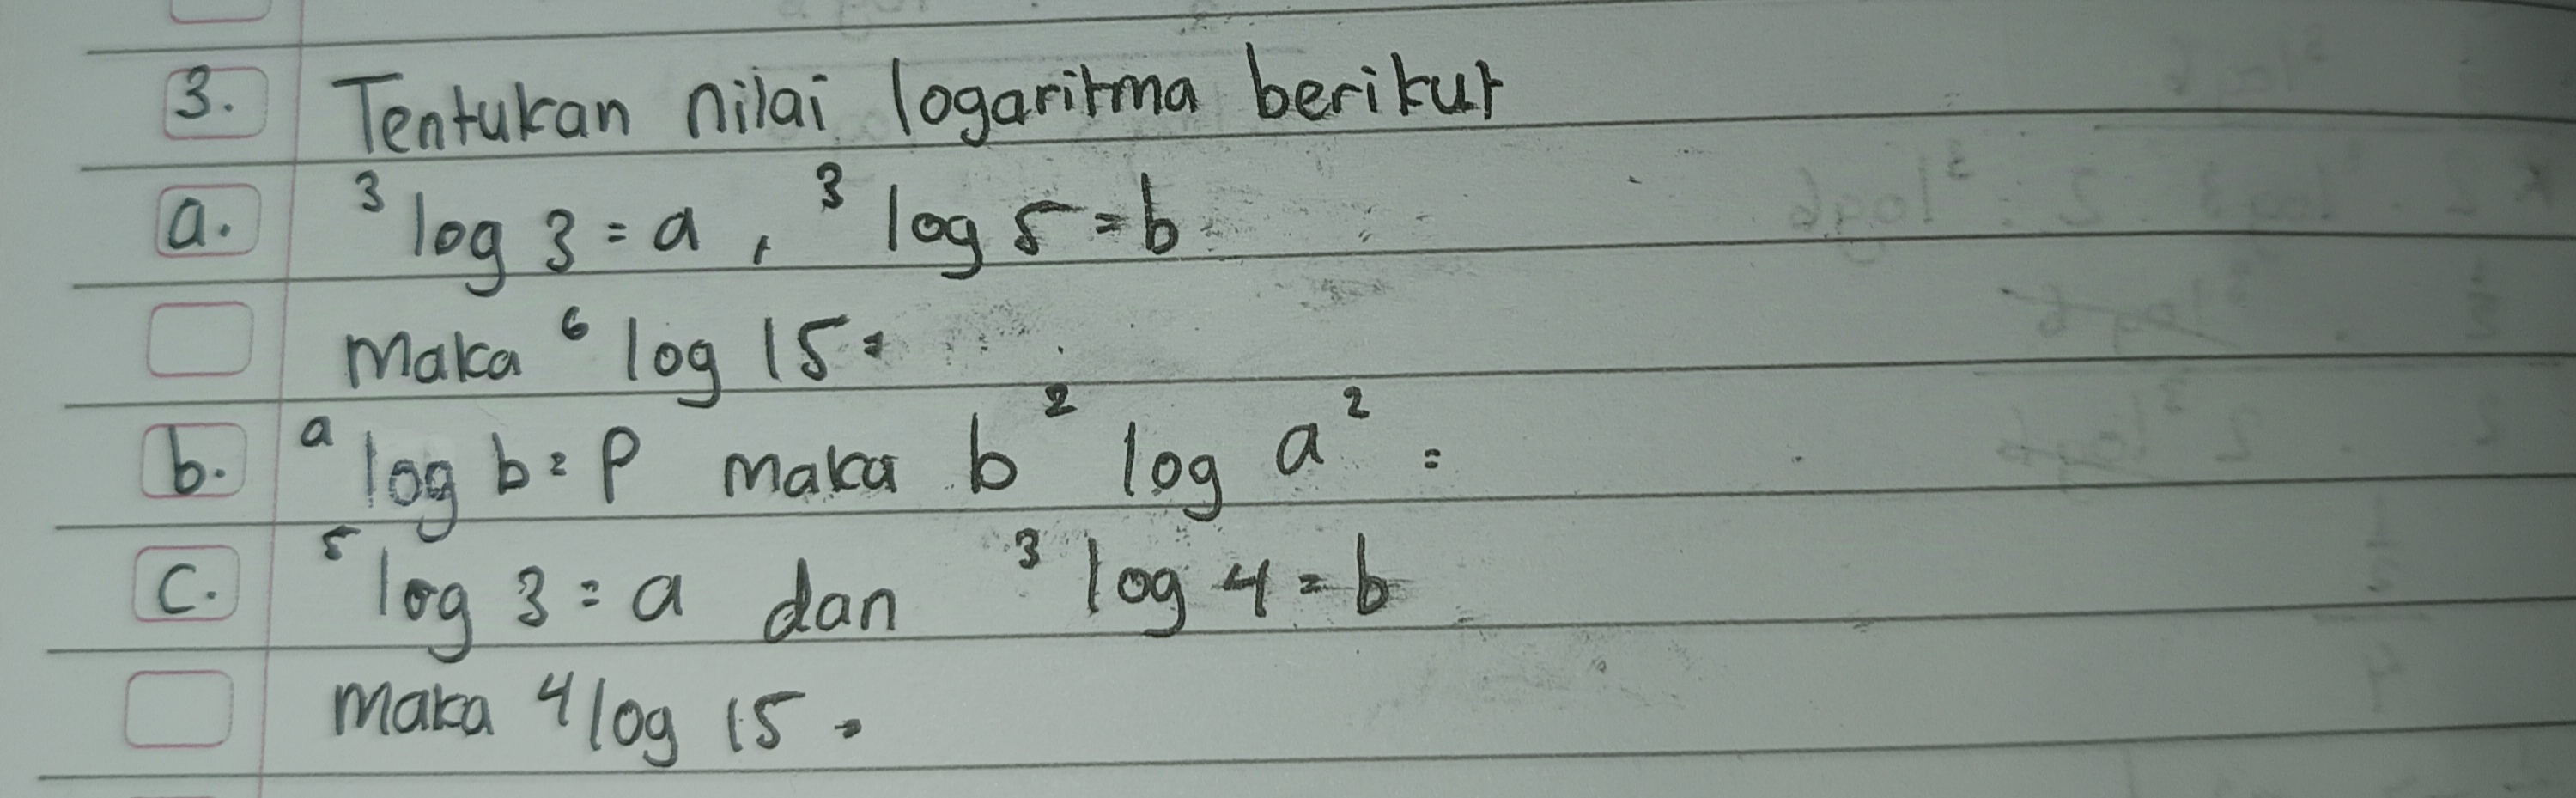 3. Tentukan nilai logaritma berikut
a. ³ log 3 = a , ³ log 5 = b
Maka ⁶ log 15 =
b. ᵃ log b = P maka b² log a² =
c. ⁵ log 3 = a dan ³ log 4 = b
Maka ⁴ log 15 =